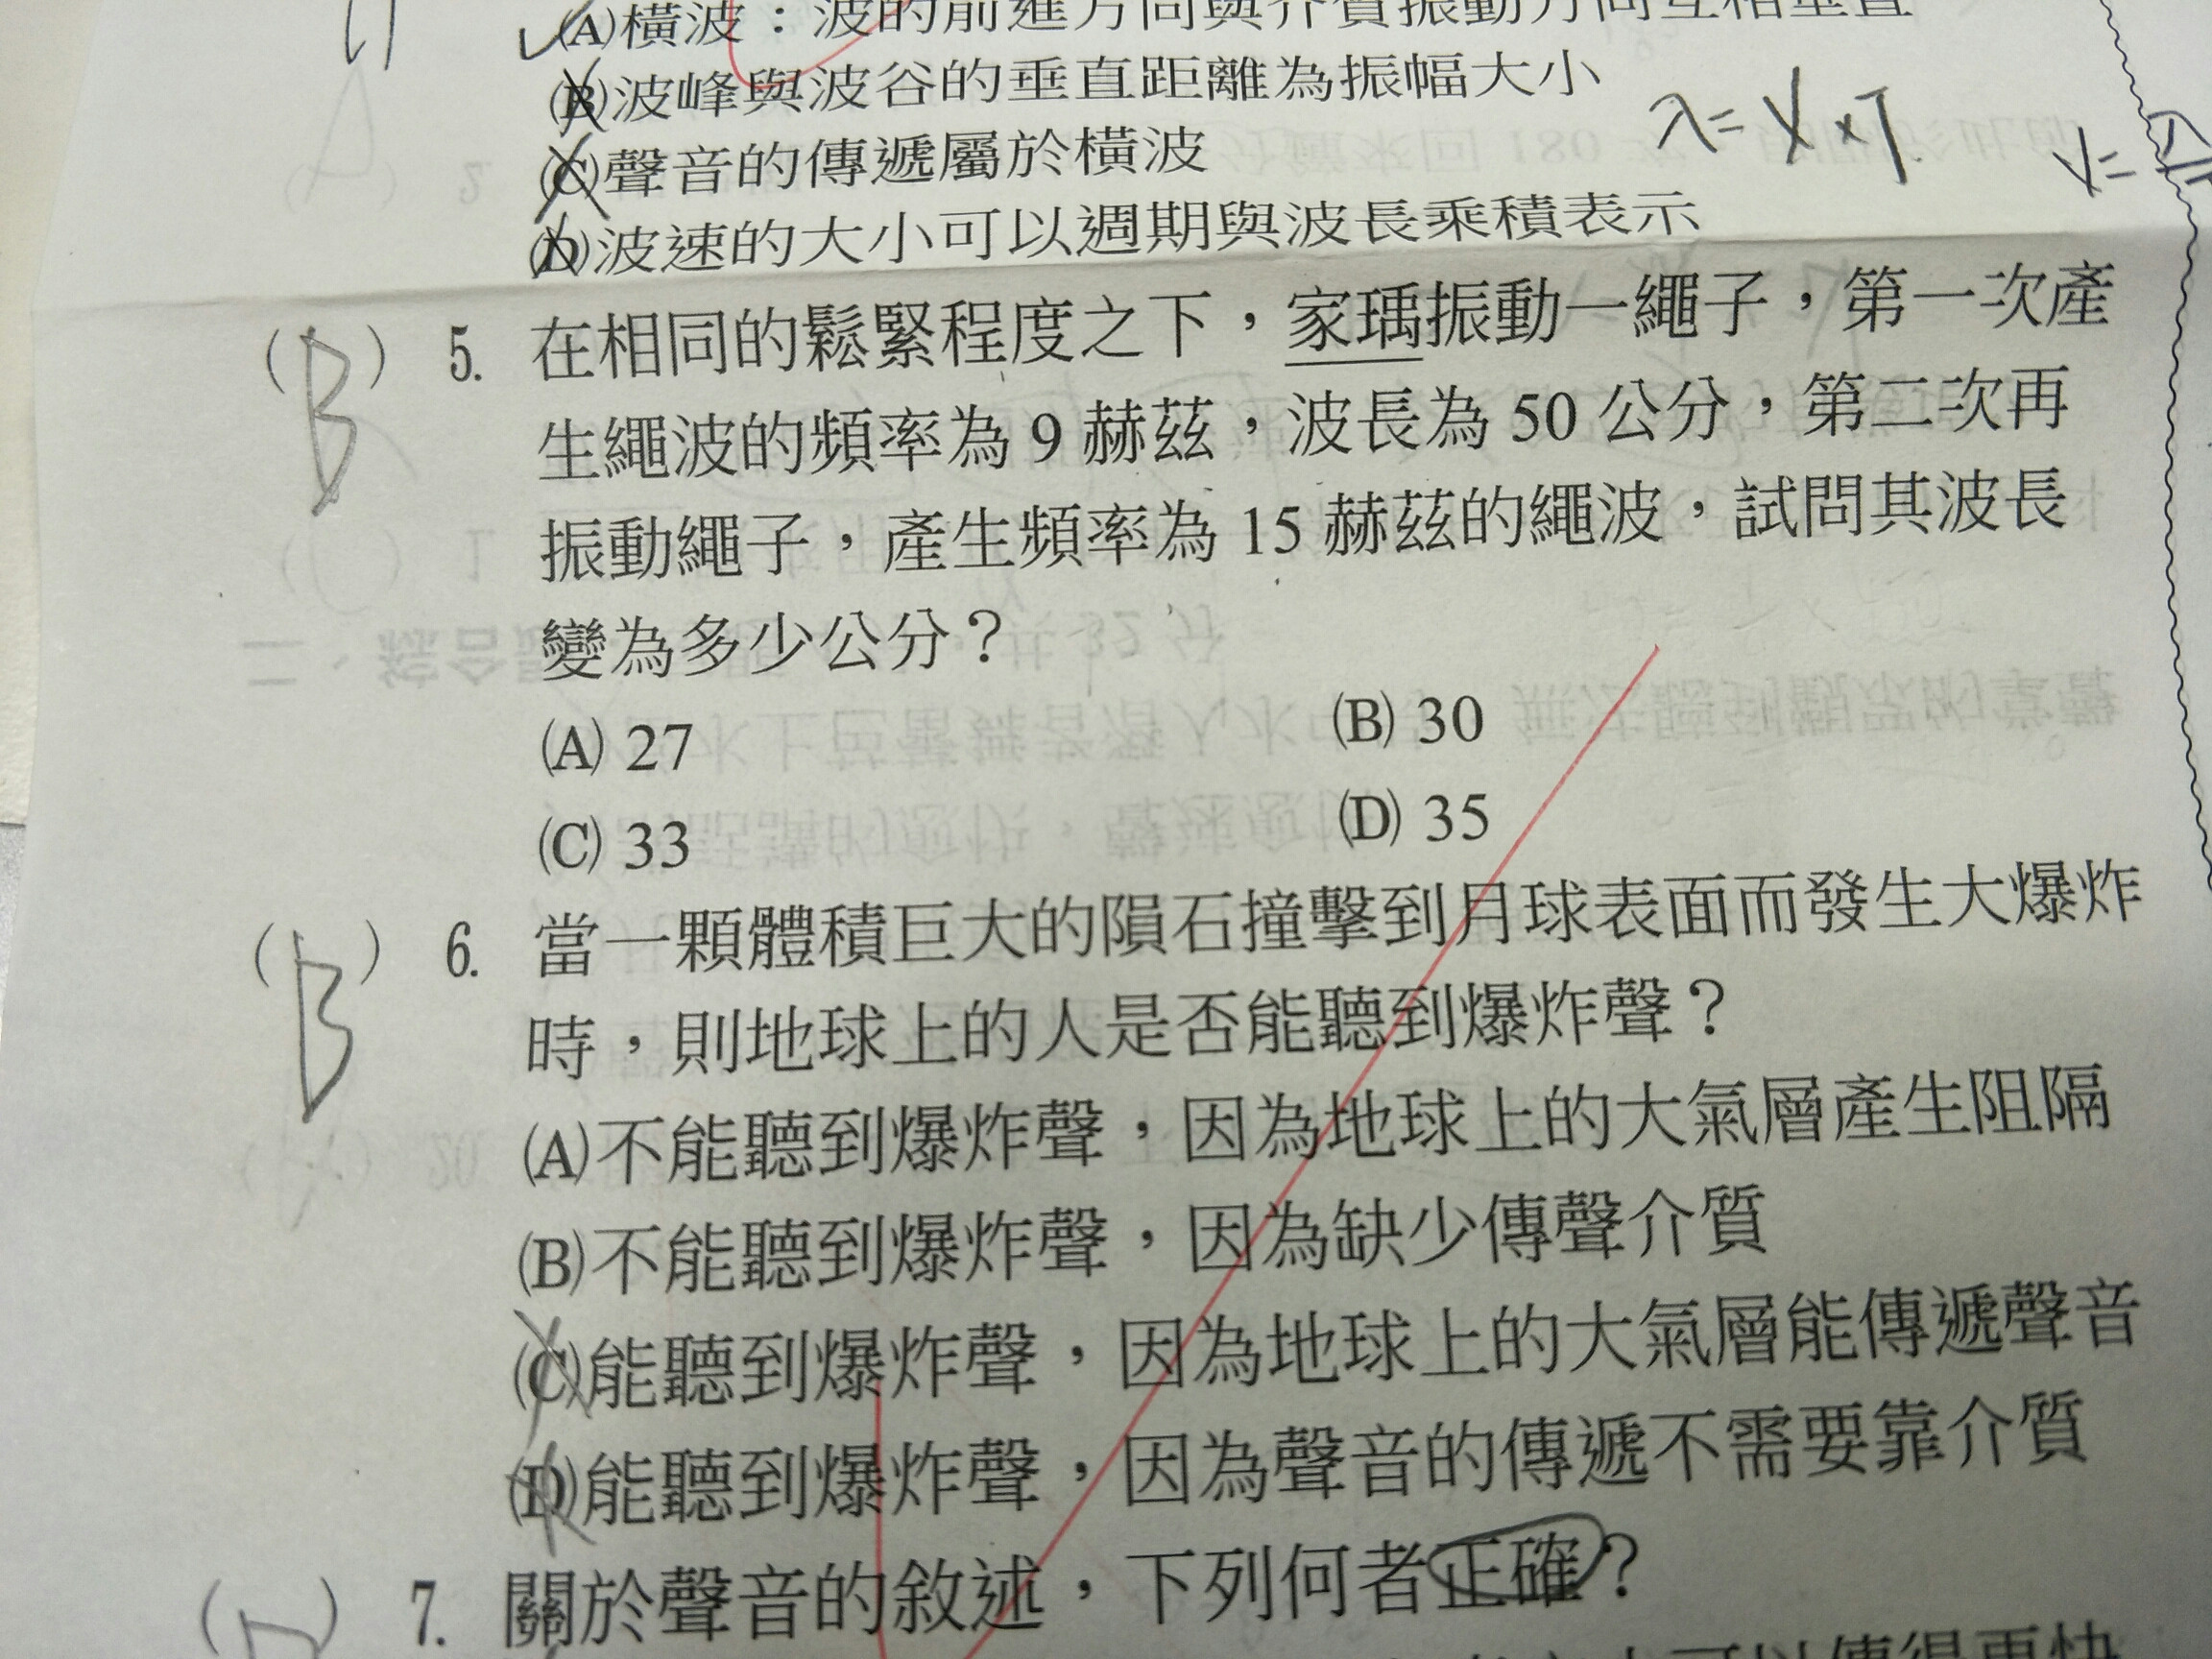 (A)橫波：波的前進方向與介質振動方向互相垂直
(B)波峰與波谷的垂直距離為振幅大小
(C)聲音的傳遞屬於橫波
λ=V×T
V=
(D)波速的大小可以週期與波長乘積表示
(B) 5. 在相同的鬆緊程度之下，家瑀振動一繩子，第一次產
生繩波的頻率為 9 赫茲，波長為 50 公分，第二次再
振動繩子，產生頻率為 15 赫茲的繩波，試問其波長
變為多少公分？
(A) 27 (B) 30
(C) 33 (D) 35
(B) 6. 當一顆體積巨大的隕石撞擊到月球表面而發生大爆炸
時，則地球上的人是否能聽到爆炸聲？
(A)不能聽到爆炸聲，因為地球上的大氣層產生阻隔
(B)不能聽到爆炸聲，因為缺少傳聲介質
(C)能聽到爆炸聲，因為地球上的大氣層能傳遞聲音
(D)能聽到爆炸聲，因為聲音的傳遞不需要靠介質
7. 關於聲音的敘述，下列何者正確？